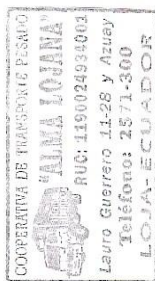 COOPERATIVA DE TRANSPORTE PESADO
"ALMA LOJANA"
RUC: 1190024934001
Lauro Guerrero 11-28 y Azuay
Teléfono: 2571-300
LOJA-ECUADOR